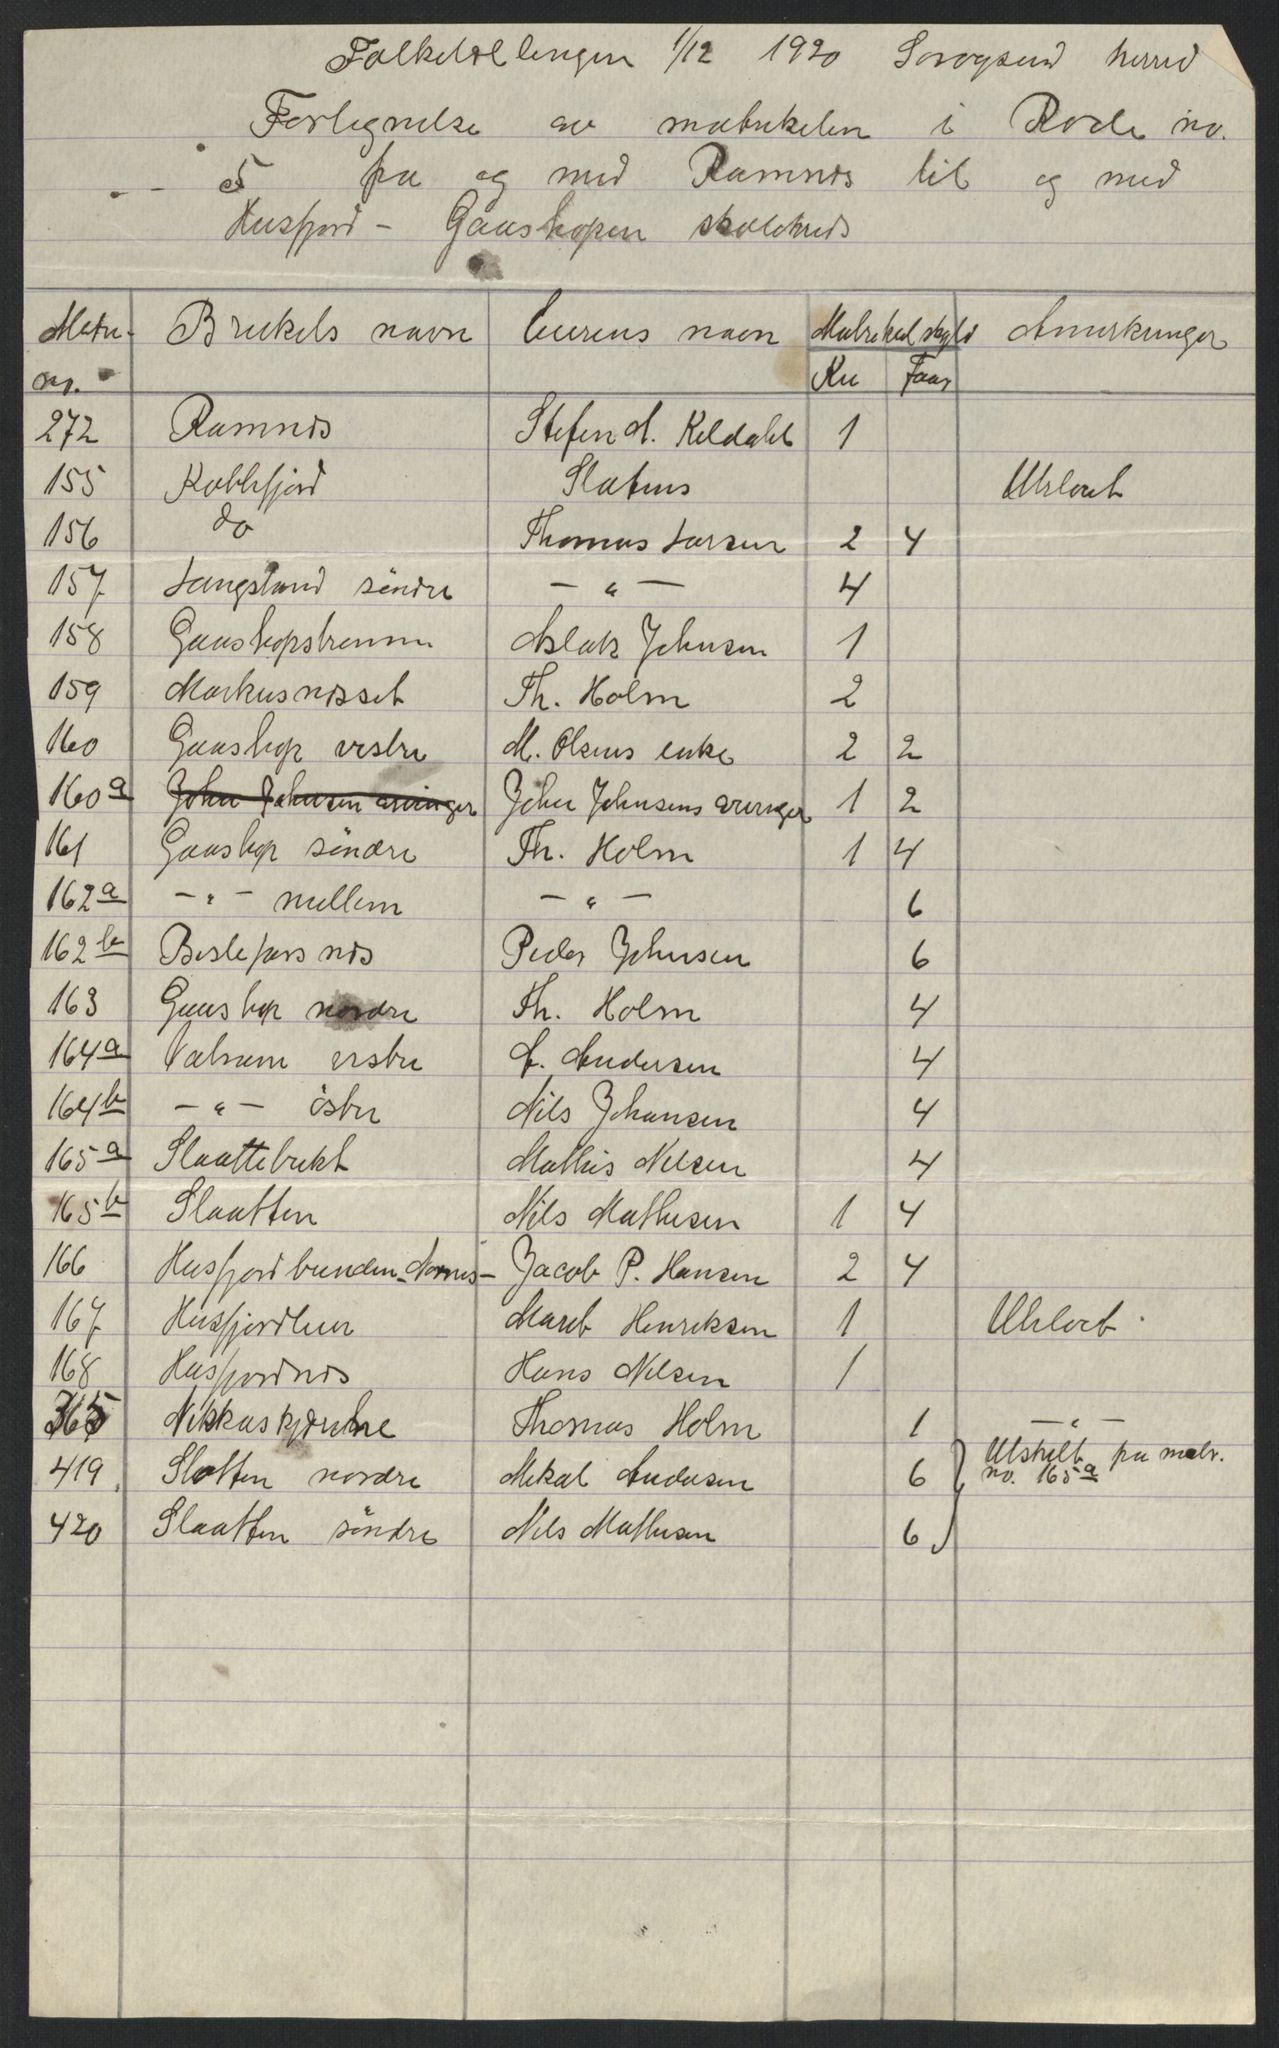 Folketællingen 1/12 1920 Sørøysund herred
Fortegnelse av matrikelen i Rode no.
5 fra og med Ramnes til og med
Husfjord - Gaashopen skolekreds
Matr. no. Brukets navn Eierens navn Matrikul skyld Anmerkninger
Ku Faar
272 Ramnes Stefen M. Keldahl 1
155 Kobbefjord Statens Utelært
156 do Thomas Larsen 2 4
157 Langstrand söndre - " - 4
158 Gaashopstrømmen Aslak Johnsen 1
159 Markusnesset Th. Holm 2
160 Gaashop vestre M. Olsens enke 2 2
160a John Johnsen arvinger John Johnsens arvinger 1 2
161 Gaashop söndre Th. Holm 1 4
162a - " - mellem - " - 6
162b Bestefars nes Peder Johnsen 6
163 Gaashop nordre Th. Holm 4
164a vestre A. Andersen 4
164b - " - östre Nils Johansen 4
165a Slaattebukt Mathis Nilsen 4
165b Slaatten Nils Mathisen 1 4
166 Husfjordbunden Jacob P. Hansen 2 4
167 Marit Henriksen 1
168 Husfjordnes Hans Nilsen 1
365 Thomas Holm 1 - " -
419 Slotten nordre Mikal Andersen 6 Utskilt fra matr.
no. 165a
420 Slaatten söndre Nils Mathisen 6